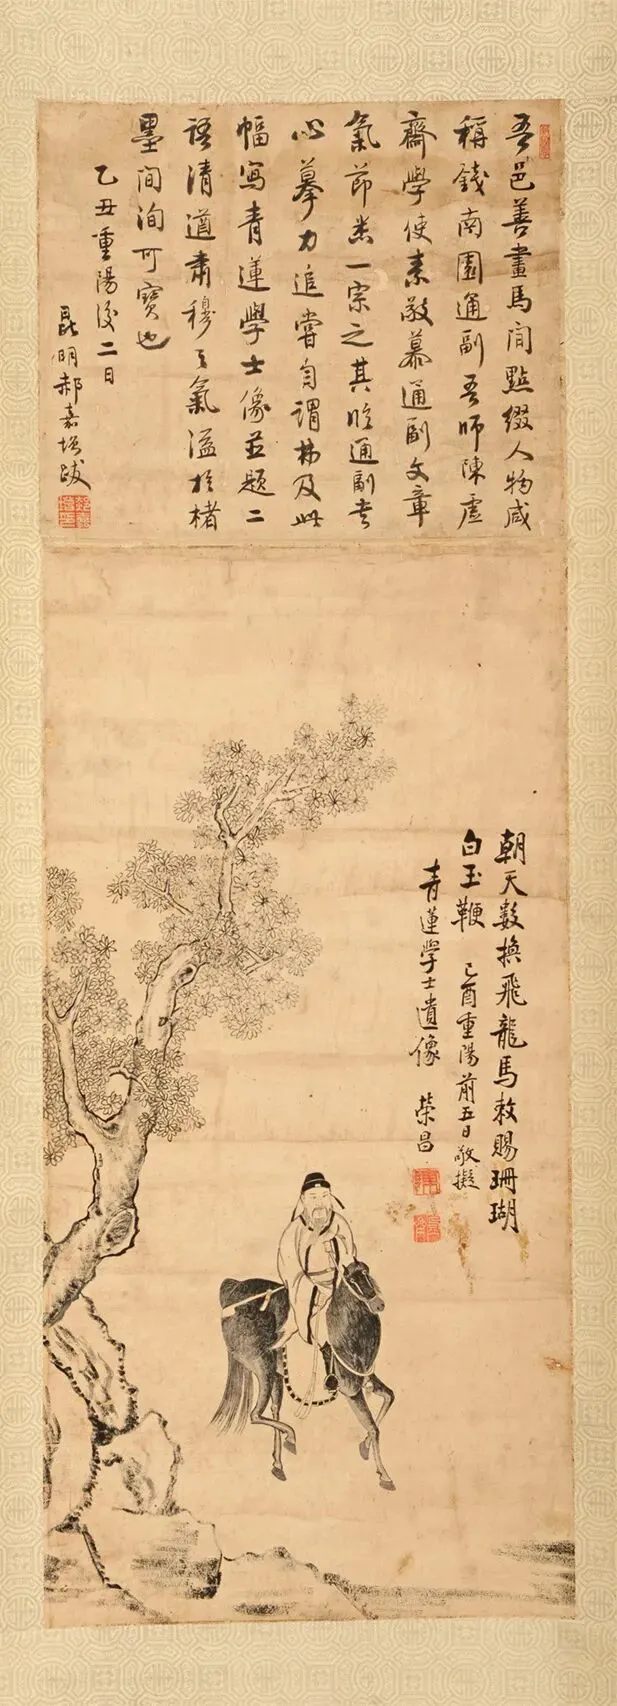 吾邑善畫馬間點綴人物咸
稱錢南園通副吾師陳虛
齋學使素敬慕通副文章
氣節悉一宗之其臨通副書
心摹力追嘗自謂弗及此
幅寫青蓮學士像並題二
語清遒肅穆之氣溢於楮
墨間洵可寶也
乙丑重陽後二日
昆明郝嘉增跋
朝天數換飛龍馬敕賜珊瑚
白玉鞭
己酉重陽前五日敬擬
青蓮學士遺像
榮昌